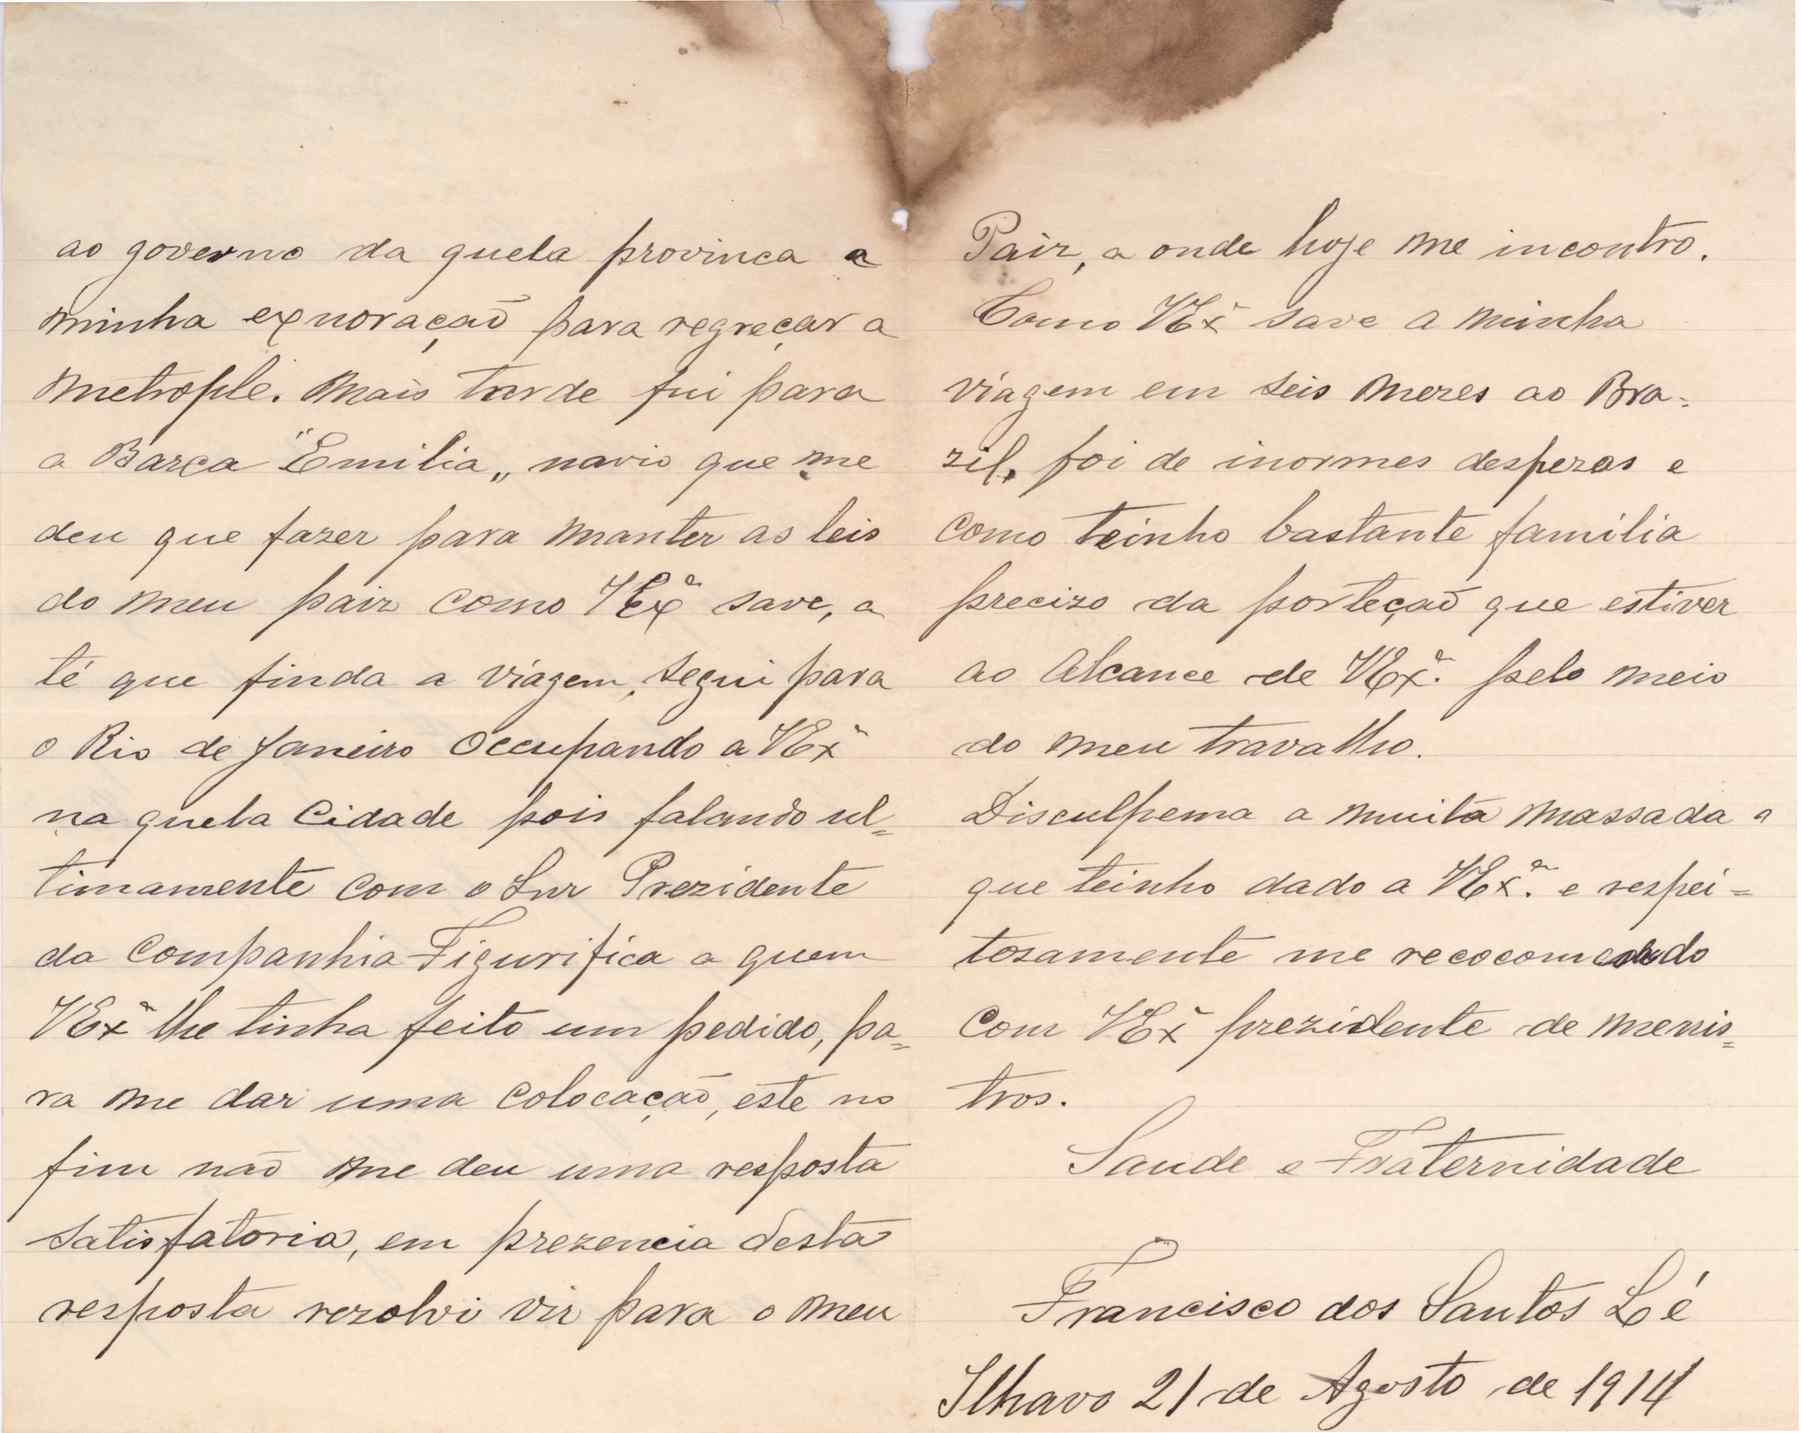 ao governo da quela provinca a
minha exnoração para regreçar a
metrople. Mais tarde fui para
a Barca "Emilia„ navio que me
deu que fazer para manter as leis
do meu paiz como VExª save, a
té que finda a viagem, segui para
o Rio de Janeiro occupando a VExª
na quela Cidade pois falando ul=
timamente com o Snr Prezidente
da Companhia Figurifica a quem
VExª lhe tinha feito um pedido, pa=
ra me dar uma colocação, este no
fim não me deu uma resposta
satisfatoria, em prezencia desta
resposta rezolvi vir para o meu
Paiz, a onde hoje me incontro.
Como VExª save a minha
viagem em seis mezes ao Bra=
zil, foi de inormes despezas e
como teinho bastante familia
precizo da porteção que estiver
ao Alcance de VExª. pelo meio
do meu travalho.
Disculpema a muita massada a
que teinho dado a VExª. e respei=
tosamente me recocomendo
com VExª prezidente de menis=
tros.
Saude e Fraternidade
Francisco dos Santos Lé
Ilhavo 21 de Agosto de 1914